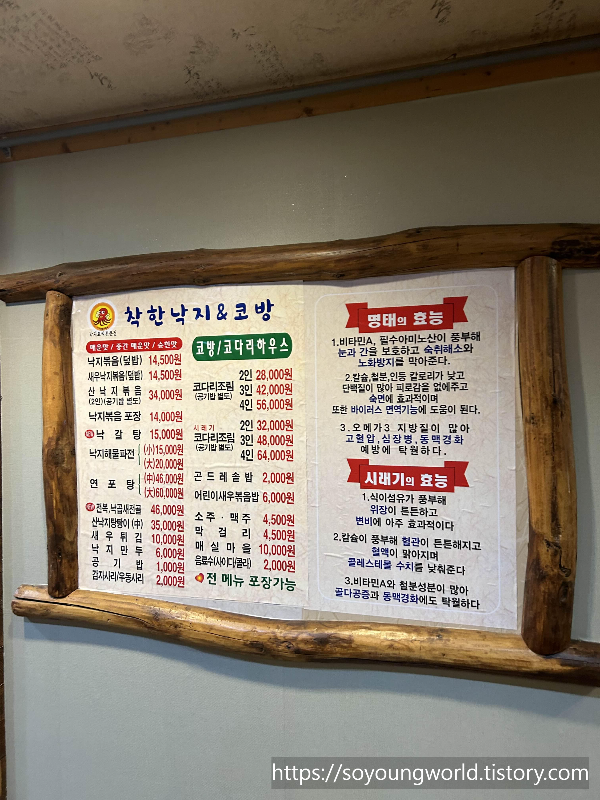 착한낙지&코방
매운맛 / 중간 매운맛 / 순한맛
낙지볶음(덮밥) 14,500원
새우낙지볶음(덮밥) 14,500원
산 낙 지 볶 음 34,000원
(2인)(공기밥 별도)
낙지볶음 포장 14,000원
낙 갈 탕 15,000원
낙지해물파전 (小)15,000원
(大)20,000원
연 포 탕 (中)46,000원
(大)60,000원
전복,낙곱새전골 46,000원
산낙지탕탕이 (中) 35,000원
새 우 튀 김 10,000원
낙 지 만 두 6,000원
공 기 밥 1,000원
김치사리/우동사리 2,000원
코방/코다리하우스
코다리조림
(공기밥 별도)
2인 28,000원
3인 42,000원
4인 56,000원
시 래 기
코다리조림
(공기밥 별도)
2인 32,000원
3인 48,000원
4인 64,000원
곤 드 레 솥 밥 2,000원
어린이새우볶음밥 6,000원
소 주 · 맥 주 4,500원
막 걸 리 4,500원
매 실 마 을 10,000원
음료수(사이다/콜라) 2,000원
전 메뉴 포장가능
명태의 효능
1.비타민A, 필수아미노산이 풍부해
눈과 간을 보호하고 숙취해소와
노화방지를 막아준다.
2.칼슘,철분,인등 칼로리가 낮고
단백질이 많아 피로감을 없애주고
숙면에 효과적이며
또한 바이러스 면역기능에 도움이 된다.
3.오메가3 지방질이 많아
고혈압,심장병,동맥경화
예방에 탁월하다.
시래기의 효능
1.식이섬유가 풍부해
위장이 튼튼하고
변비에 아주 효과적이다
2.칼슘이 풍부해 혈관이 튼튼해지고
혈액이 맑아지며
콜레스테롤 수치를 낮춰준다
3.비타민A와 철분성분이 많아
골다공증과 동맥경화에도 탁월하다
https://soyoungworld.tistory.com